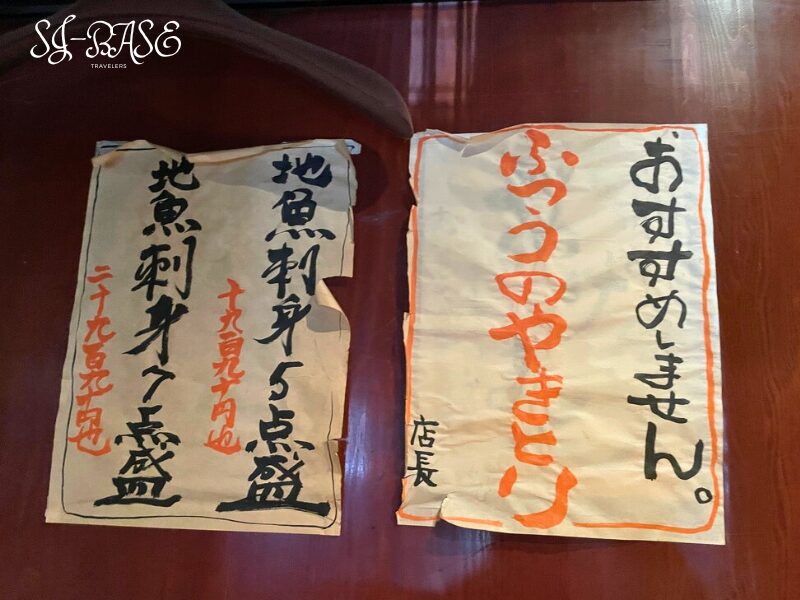 SJ-BASE
TRAVELERS
おすすめしません。
ふつうのやきとり
店長
地魚刺身5点盛
千九百九十円也
地魚刺身7点盛
二千九百九十円也